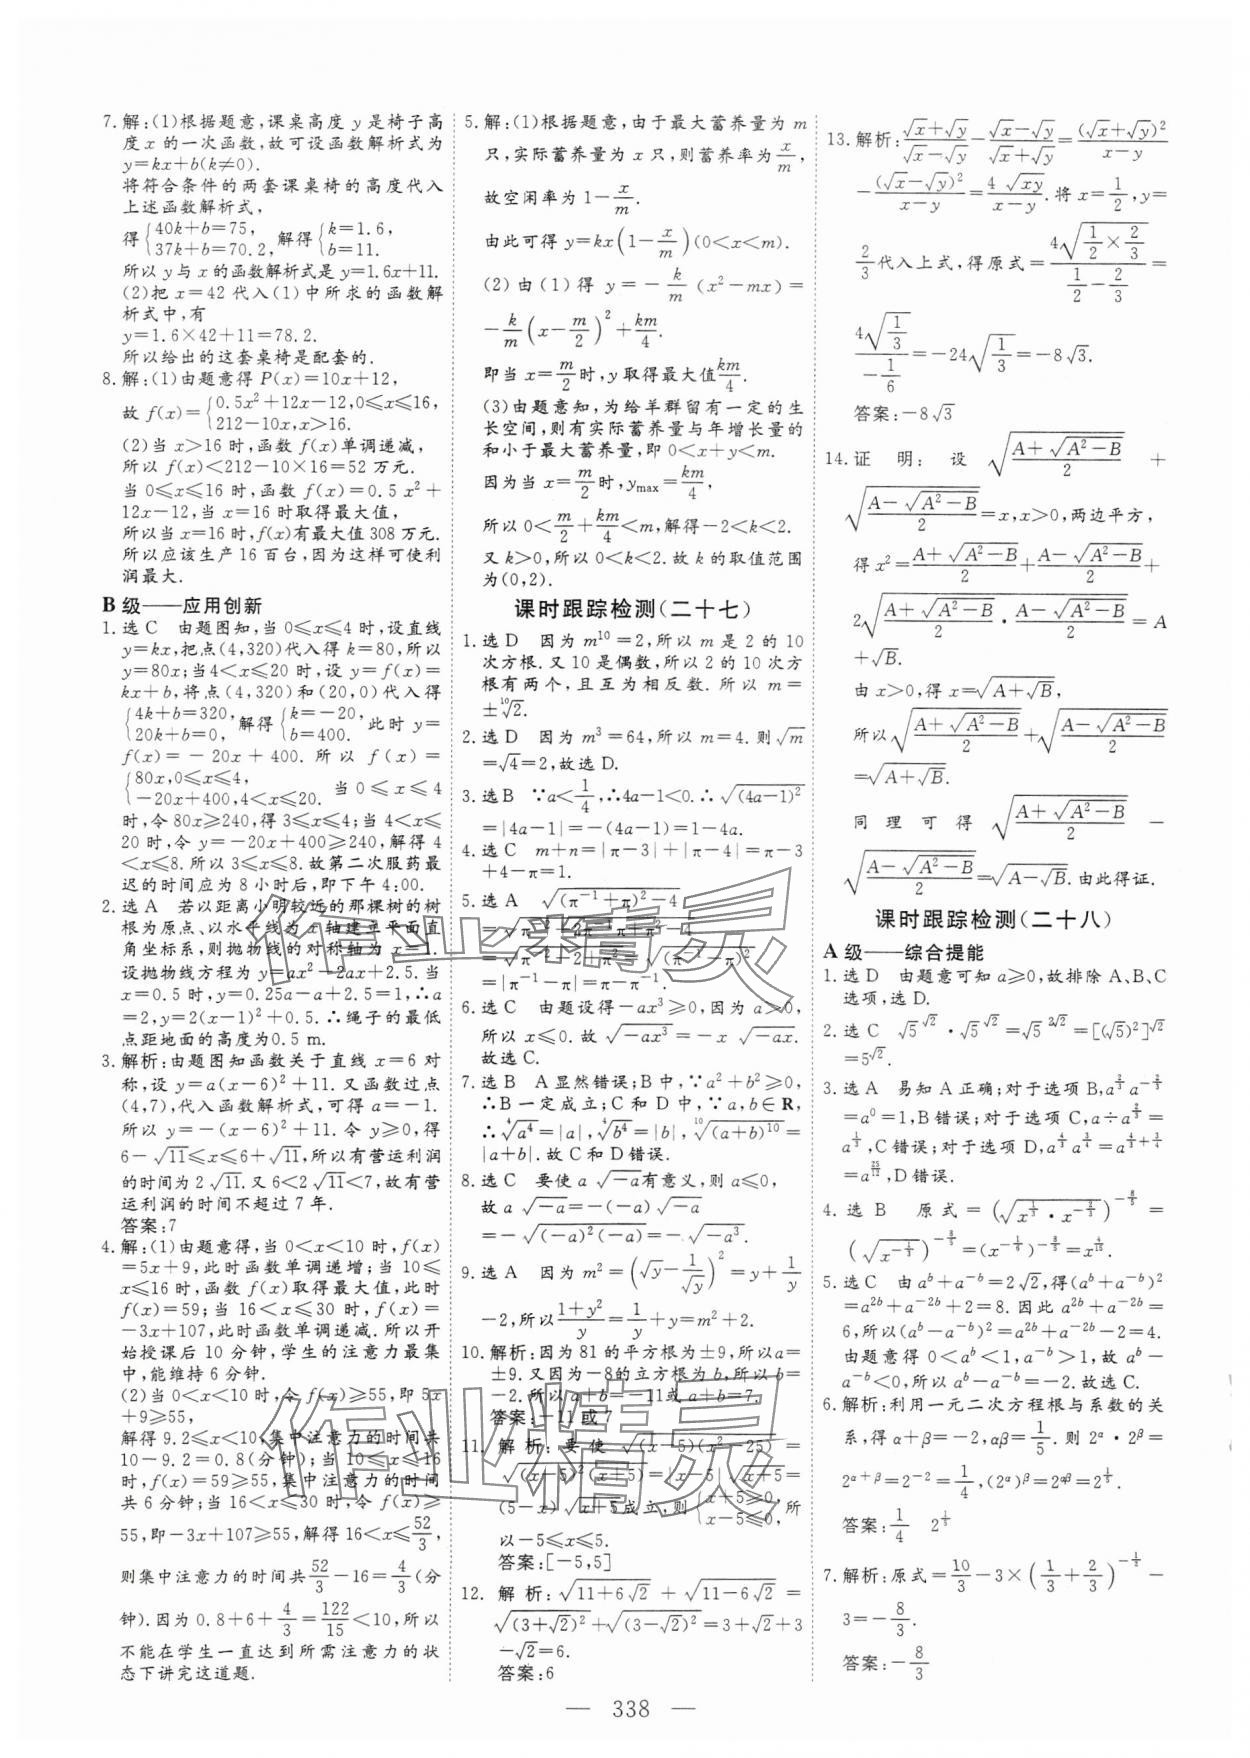 7.解:(1)根据题意,课桌高度 y 是椅子高
度 x 的一次函数,故可设函数解析式为
y=kx+b(k≠0).
将符合条件的两套课桌椅的高度代入
上述函数解析式,
得{40k+b=75, 37k+b=70.2, 解得{k=1.6, b=11.
所以 y 与 x 的函数解析式是 y=1.6x+11.
(2)把 x=42 代入(1)中所求的函数解
析式中,有
y=1.6×42+11=78.2.
所以给出的这套桌椅是配套的.
8.解:(1)由题意得 P(x)=10x+12,
故 f(x)={0.5x²+12x-12,0≤x≤16, 212-10x,x>16.
(2)当 x>16 时,函数 f(x)单调递减,
所以 f(x)<212-10×16=52 万元.
当 0≤x≤16 时,函数 f(x)=0.5 x²+
12x-12,当 x=16 时取得最大值,
所以当 x=16 时,f(x)有最大值 308 万元.
所以应该生产 16 百台,因为这样可使利
润最大.
B 级——应用创新
1.选 C 由题图知,当 0≤x≤4 时,设直线
y=kx,把点(4,320)代入得 k=80,所以
y=80x;当 4<x≤20 时,设 y=f(x)=
kx+b,将点(4,320)和(20,0)代入得
{4k+b=320, 20k+b=0, 解得{k=-20, b=400. 此时 y=
f(x)=-20x+400.所以 f(x)=
{80x,0≤x≤4, -20x+400,4<x≤20. 当 0≤x≤4
时,令 80x≥240,得 3≤x≤4;当 4<x≤
20 时,令 y=-20x+400≥240,解得 4
<x≤8.所以 3≤x≤8.故第二次服药最
迟的时间应为 8 小时后,即下午 4:00.
2.选 A 若以距离小明较近的那棵树的树
根为原点、以水平线为 x 轴建立平面直
角坐标系,则抛物线的对称轴为 x=1.
设抛物线方程为 y=ax²-2ax+2.当
x=0.5 时,y=0.25a-a+2=2.5-1,∴a
=2,y=2(x-1)²+0.5.∴绳子的最低
点距地面的高度为 0.5 m.
3.解析:由题图知函数关于直线 x=6 对
称,设 y=a(x-6)²+11.又函数过点
(4,7),代入函数解析式,可得 a=-1.
所以 y=-(x-6)²+11.令 y≥0,得
6-√11≤x≤6+√11,所以有营运利润
的时间为 2√11.又 6<2√11<7,故有营
运利润的时间不超过 7 年.
答案:7
4.解:(1)由题意得,当 0<x<10 时,f(x)
=5x+9,此时函数单调递增;当 10≤
x≤16 时,函数 f(x)取得最大值,此时
f(x)=59;当 16<x≤30 时,f(x)=
-3x+107,此时函数单调递减.所以开
始授课后 10 分钟,学生的注意力最集
中,能维持 6 分钟.
(2)当 0<x<10 时,令 f(x)≥55,即 5x
+9≥55,
解得 9.2≤x<10,集中注意力的时间共
10-9.2=0.8(分钟);当 10≤x≤16
时,f(x)=59≥55,集中注意力的时间
共 6 分钟;当 16<x≤30 时,令 f(x)≥
55,即-3x+107≥55,解得 16<x≤52/3,
则集中注意力的时间共 52/3-16=4/3(分
钟).因为 0.8+6+4/3=122/15<10,所以
不能在学生一直达到所需注意力的状
态下讲完这道题.
5.解:(1)根据题意,由于最大蓄养量为 m
只,实际蓄养量为 x 只,则蓄养率为 x/m,
故空闲率为 1-x/m.
由此可得 y=kx(1-x/m)(0<x<m).
(2)由(1)得 y=-k/m(x²-mx)=
-k/m(x-m/2)²+km/4.
即当 x=m/2 时,y 取得最大值 km/4.
(3)由题意知,为给羊群留有一定的生
长空间,则有实际蓄养量与年增长量的
和小于最大蓄养量,即 0<x+y<m.
因为当 x=m/2 时,y_max=km/4,
所以 0<m/2+km/4<m,解得-2<k<2.
又 k>0,所以 0<k<2.故 k 的取值范围
为(0,2).
课时跟踪检测(二十七)
1.选 D 因为 m¹⁰=2,所以 m 是 2 的 10
次方根.又 10 是偶数,所以 2 的 10 次方
根有两个,且互为相反数.所以 m=
±¹⁰√2.
2.选 D 因为 m³=64,所以 m=4.则√m
=√4=2,故选 D.
3.选 B ∵a<1/4,∴4a-1<0.∴√(4a-1)²
=|4a-1|=-(4a-1)=1-4a.
4.选 C m+n=|π-3|+|π-4|=π-3
+4-π=1.
5.选 A √((π⁻¹+π)²-4)
=√(π⁻²-2+π²)=√((π⁻¹-π)²)
=|π⁻¹-π|=π-π⁻¹.
6.选 C 由题设得-ax³≥0,因为 a>0,
所以 x≤0.故√(-ax³)=-x√(-ax).
故选 C.
7.选 B A 显然错误;B 中,∵a²+b²≥0,
∴B 一定成立;C 和 D 中,∵a,b∈R,
∴⁴√a⁴=|a|,⁴√b⁴=|b|,¹⁰√(a+b)¹⁰=
|a+b|.故 C 和 D 错误.
8.选 C 要使 a√(-a)有意义,则 a≤0,
故 a√(-a)=-(-a)√(-a)
=-√((-a)²(-a))=-√(-a³).
9.选 A 因为 m²=(√y-1/√y)²=y+1/y
-2,所以(1+y²)/y=1/y+y=m²+2.
10.解析:因为 81 的平方根为±9,所以 a=
±9.又因为-8 的立方根为 b,所以 b=
-2.所以 a+b=-11 或 a+b=7.
答案:-11 或 7
11.解析:要使√((x-5)(x²-25))=
√((x-5)²(x+5))=|x-5|√(x+5)=
(5-x)√(x+5)成立,则{x+5≥0, x-5≤0, 所
以-5≤x≤5.
答案:[-5,5]
12.解析:√(11+6√2)+√(11-6√2)=
√((3+√2)²)+√((3-√2)²)=3+√2+3
-√2=6.
答案:6
13.解析:(√x+√y)/(√x-√y)-(√x-√y)/(√x+√y)=(√x+√y)²/(x-y)
-(√x-√y)²/(x-y)=4√(xy)/(x-y).将 x=1/2,y=
2/3代入上式,得原式=4√(1/2×2/3)/(1/2-2/3)=
4√(1/3)/(-1/6)=-24√(1/3)=-8√3.
答案:-8√3
14.证明:设 √((A+√(A²-B))/2)+
√((A-√(A²-B))/2)=x,x>0,两边平方,
得 x²=(A+√(A²-B))/2+(A-√(A²-B))/2+
2√((A+√(A²-B))/2·(A-√(A²-B))/2)=A
+√B.
由 x>0,得 x=√(A+√B),
所以√((A+√(A²-B))/2)+√((A-√(A²-B))/2)
=√(A+√B).
同理可得 √((A+√(A²-B))/2)-
√((A-√(A²-B))/2)=√(A-√B).由此得证.
课时跟踪检测(二十八)
A 级——综合提能
1.选 D 由题意可知 a≥0,故排除 A、B、C
选项,选 D.
2.选 C √5^√2·√5^√2=√5^(2√2)=[(√5)²]^√2
=5^√2.
3.选 A 易知 A 正确;对于选项 B,a^(2/3)a^(-2/3)
=a⁰=1,B 错误;对于选项 C,a÷a^(2/3)=
a^(1/3),C 错误;对于选项 D,a^(4/3)a^(3/4)=a^(4/3+3/4)
=a^(25/12),D 错误.
4.选 B 原式=(√(x^(1/3)·x^(-2/3)))^(-8/5)=
(√(x^(-1/3)))^(-8/5)=(x^(-1/6))^(-8/5)=x^(4/15).
5.选 C 由 a^b+a^(-b)=2√2,得(a^b+a^(-b))²
=a^(2b)+a^(-2b)+2=8.因此 a^(2b)+a^(-2b)=
6,所以(a^b-a^(-b))²=a^(2b)+a^(-2b)-2=4.
由题意得 0<a^b<1,a^(-b)>1,故 a^b-
a^(-b)<0,所以 a^b-a^(-b)=-2.故选 C.
6.解析:利用一元二次方程根与系数的关
系,得 α+β=-2,αβ=1/5.则 2^α·2^β=
2^(α+β)=2⁻²=1/4,(2^α)^β=2^(αβ)=2^(1/5).
答案:1/4 2^(1/5)
7.解析:原式=10/3-3×(1/3+2/3)^(-1/2)-
3=-8/3.
答案:-8/3
— 338 —
作业精灵
作业精灵